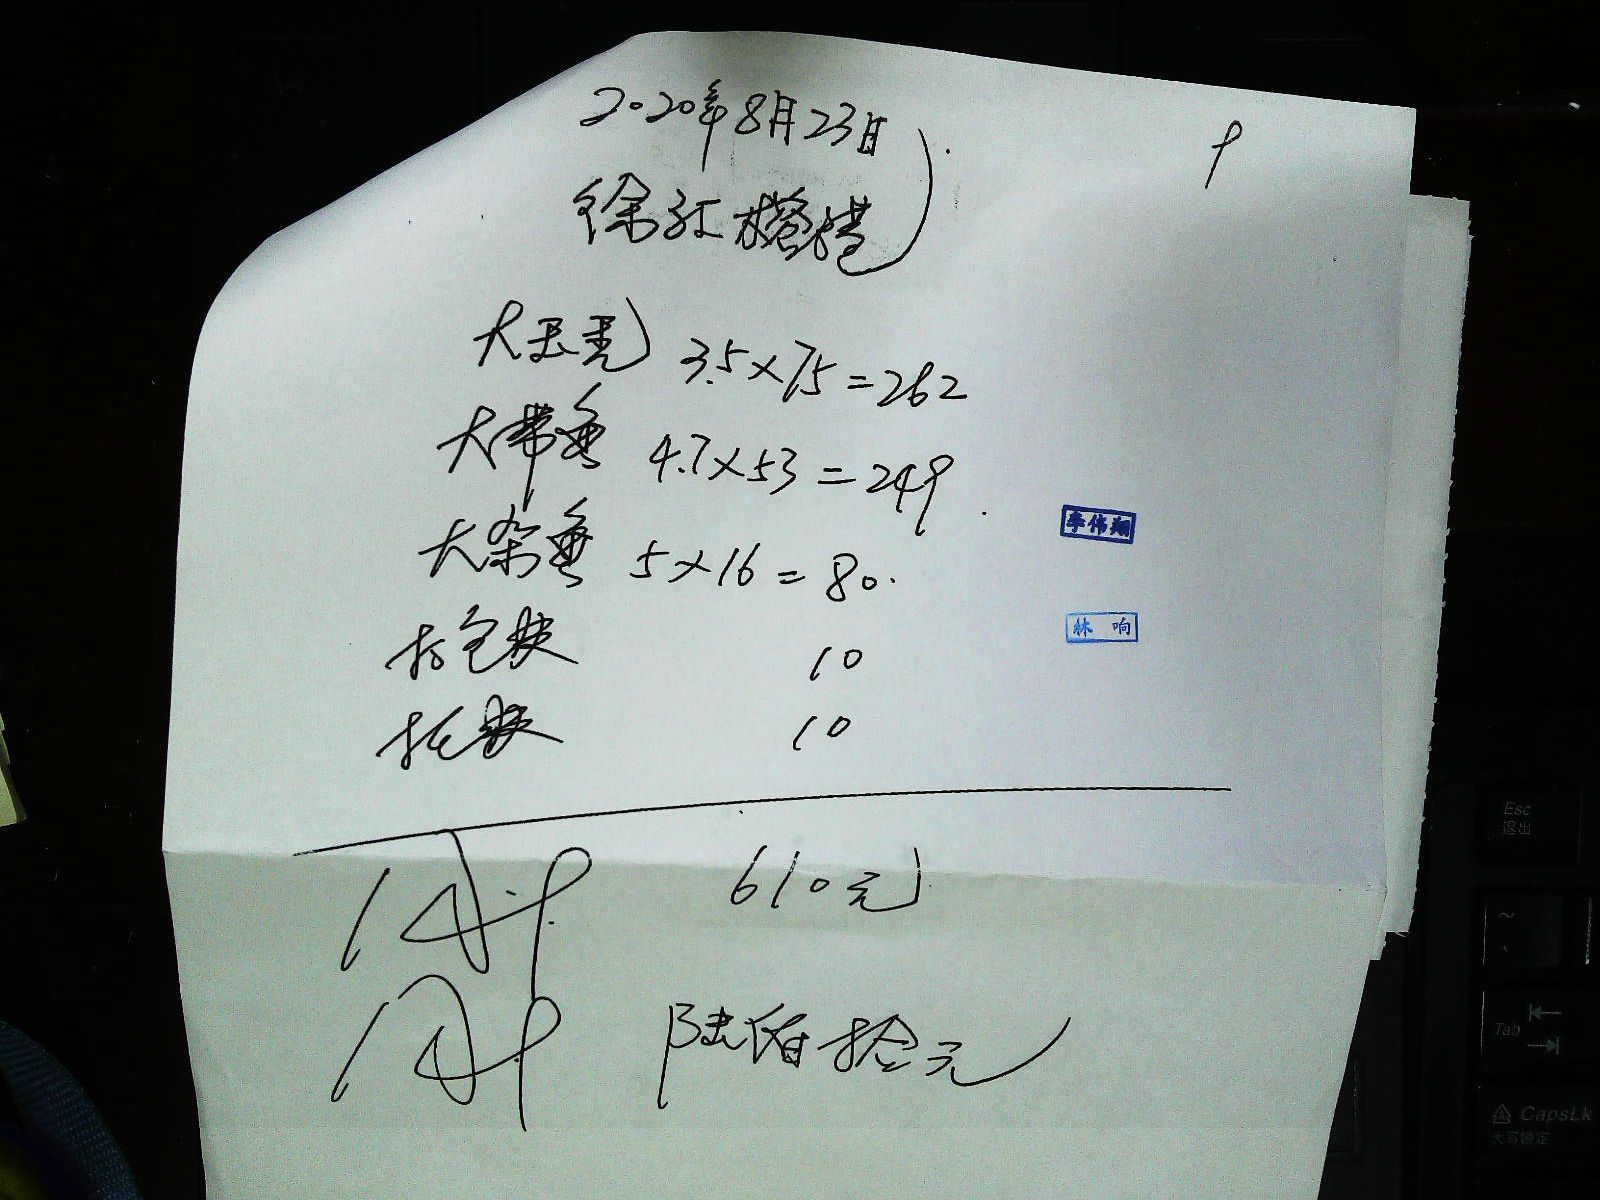 2020年8月23日
徐江
大 3.5×75=262
大带鱼 4.7×53=249
大杂鱼 5×16=80.
打包费 10
托费 10
610元
陆佰拾元
李伟翔
林 响
Esc
退出
~
Tab
CapsLk
大写锁定